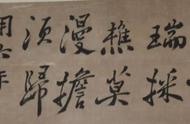 瑞採
樵莫
漫擔
須歸